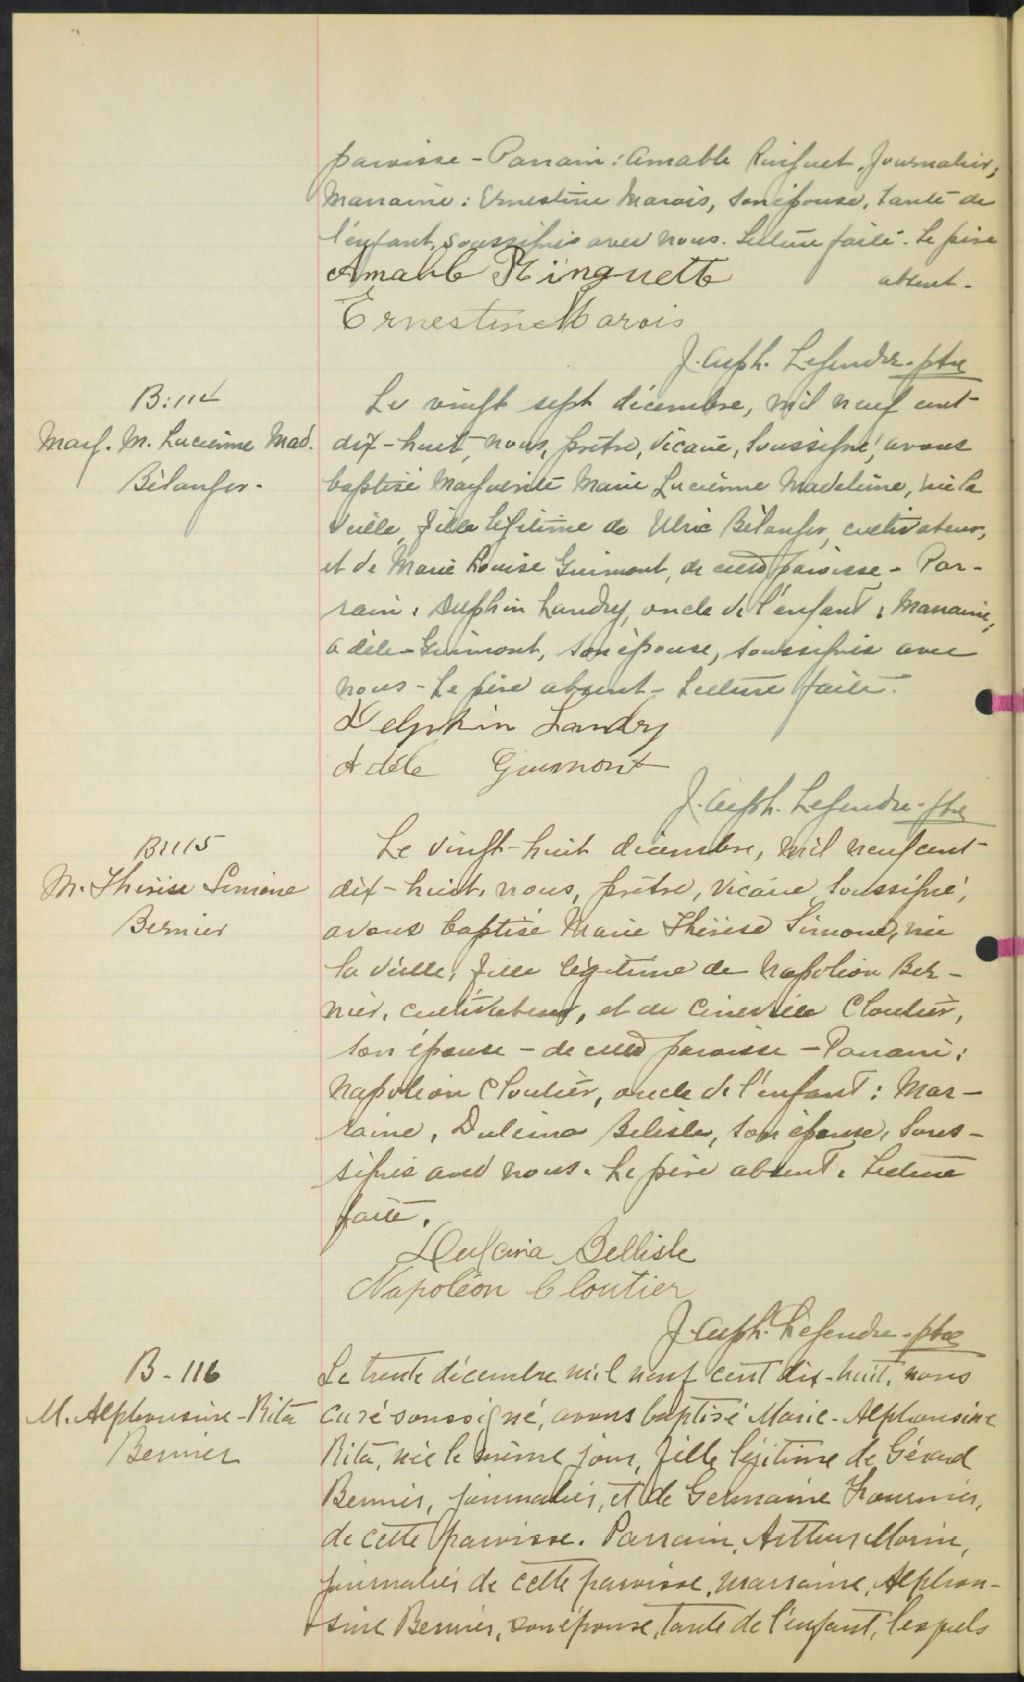 paroisse - Parrain : Amable Ringuet, Journalier,
Marraine : Ernestine Marois, son épouse, tante de
l'enfant, soussignés avec nous. Lecture faite. Le père
absent.
Amable Ringuette
Ernestine Marois
J. Adph. Legendre. ptre
B: 114
Marg. M. Lucienne Mad.
Bélanger.
Le vingt sept décembre, mil neuf cent
dix-huit, nous, prêtre, vicaire, soussigné, avons
baptisé Marguerite Marie Lucienne Madeleine, née la
veille, fille légitime de Ulric Bélanger, cultivateur,
et de Marie Louise Guimont, de cette paroisse - Par-
rain : Delphin Landry, oncle de l'enfant ; Marraine,
Adèle Guimont, son épouse, soussignés avec
nous - Le père absent - Lecture faite.
Delphin Landry
Adèle Guimont
J. Adph. Legendre. ptre
B 115
M. Thérèse Simone
Bernier
Le vingt-huit décembre, mil neuf cent
dix-huit, nous, prêtre, vicaire soussigné,
avons baptisé Marie Thérèse Simone, née
la veille, fille légitime de Napoléon Ber-
nier, cultivateur, et de Cloutier,
son épouse - de cette paroisse - Parrain :
Napoléon Cloutier, oncle de l'enfant : Mar-
raine, Dulcina Belisle, son épouse, sous-
signés avec nous. Le père absent. Lecture
faite.
Dulcina Bellisle
Napoléon Cloutier
J. Adph. Legendre. ptre
B - 116
M. Alphonsine - Rita
Bernier
Le trente décembre mil neuf cent dix-huit, nous
curé soussigné, avons baptisé Marie-Alphonsine
Rita, née le même jour, fille légitime de Gérard
Bernier, journalier, et de Germaine Fournier,
de cette paroisse. Parrain, Arthur Morin,
journalier de cette paroisse, marraine, Alphon-
sine Bernier, son épouse, tante de l'enfant, lesquels